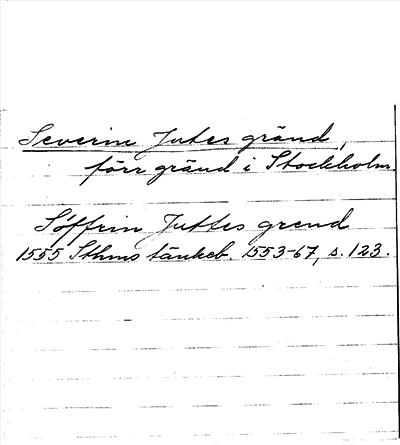 Severin Jutes gränd,
förr gränd i Stockholm
Söffrin Juttes grend
1555 Sthms tänkeb. 1553-67, s. 123.